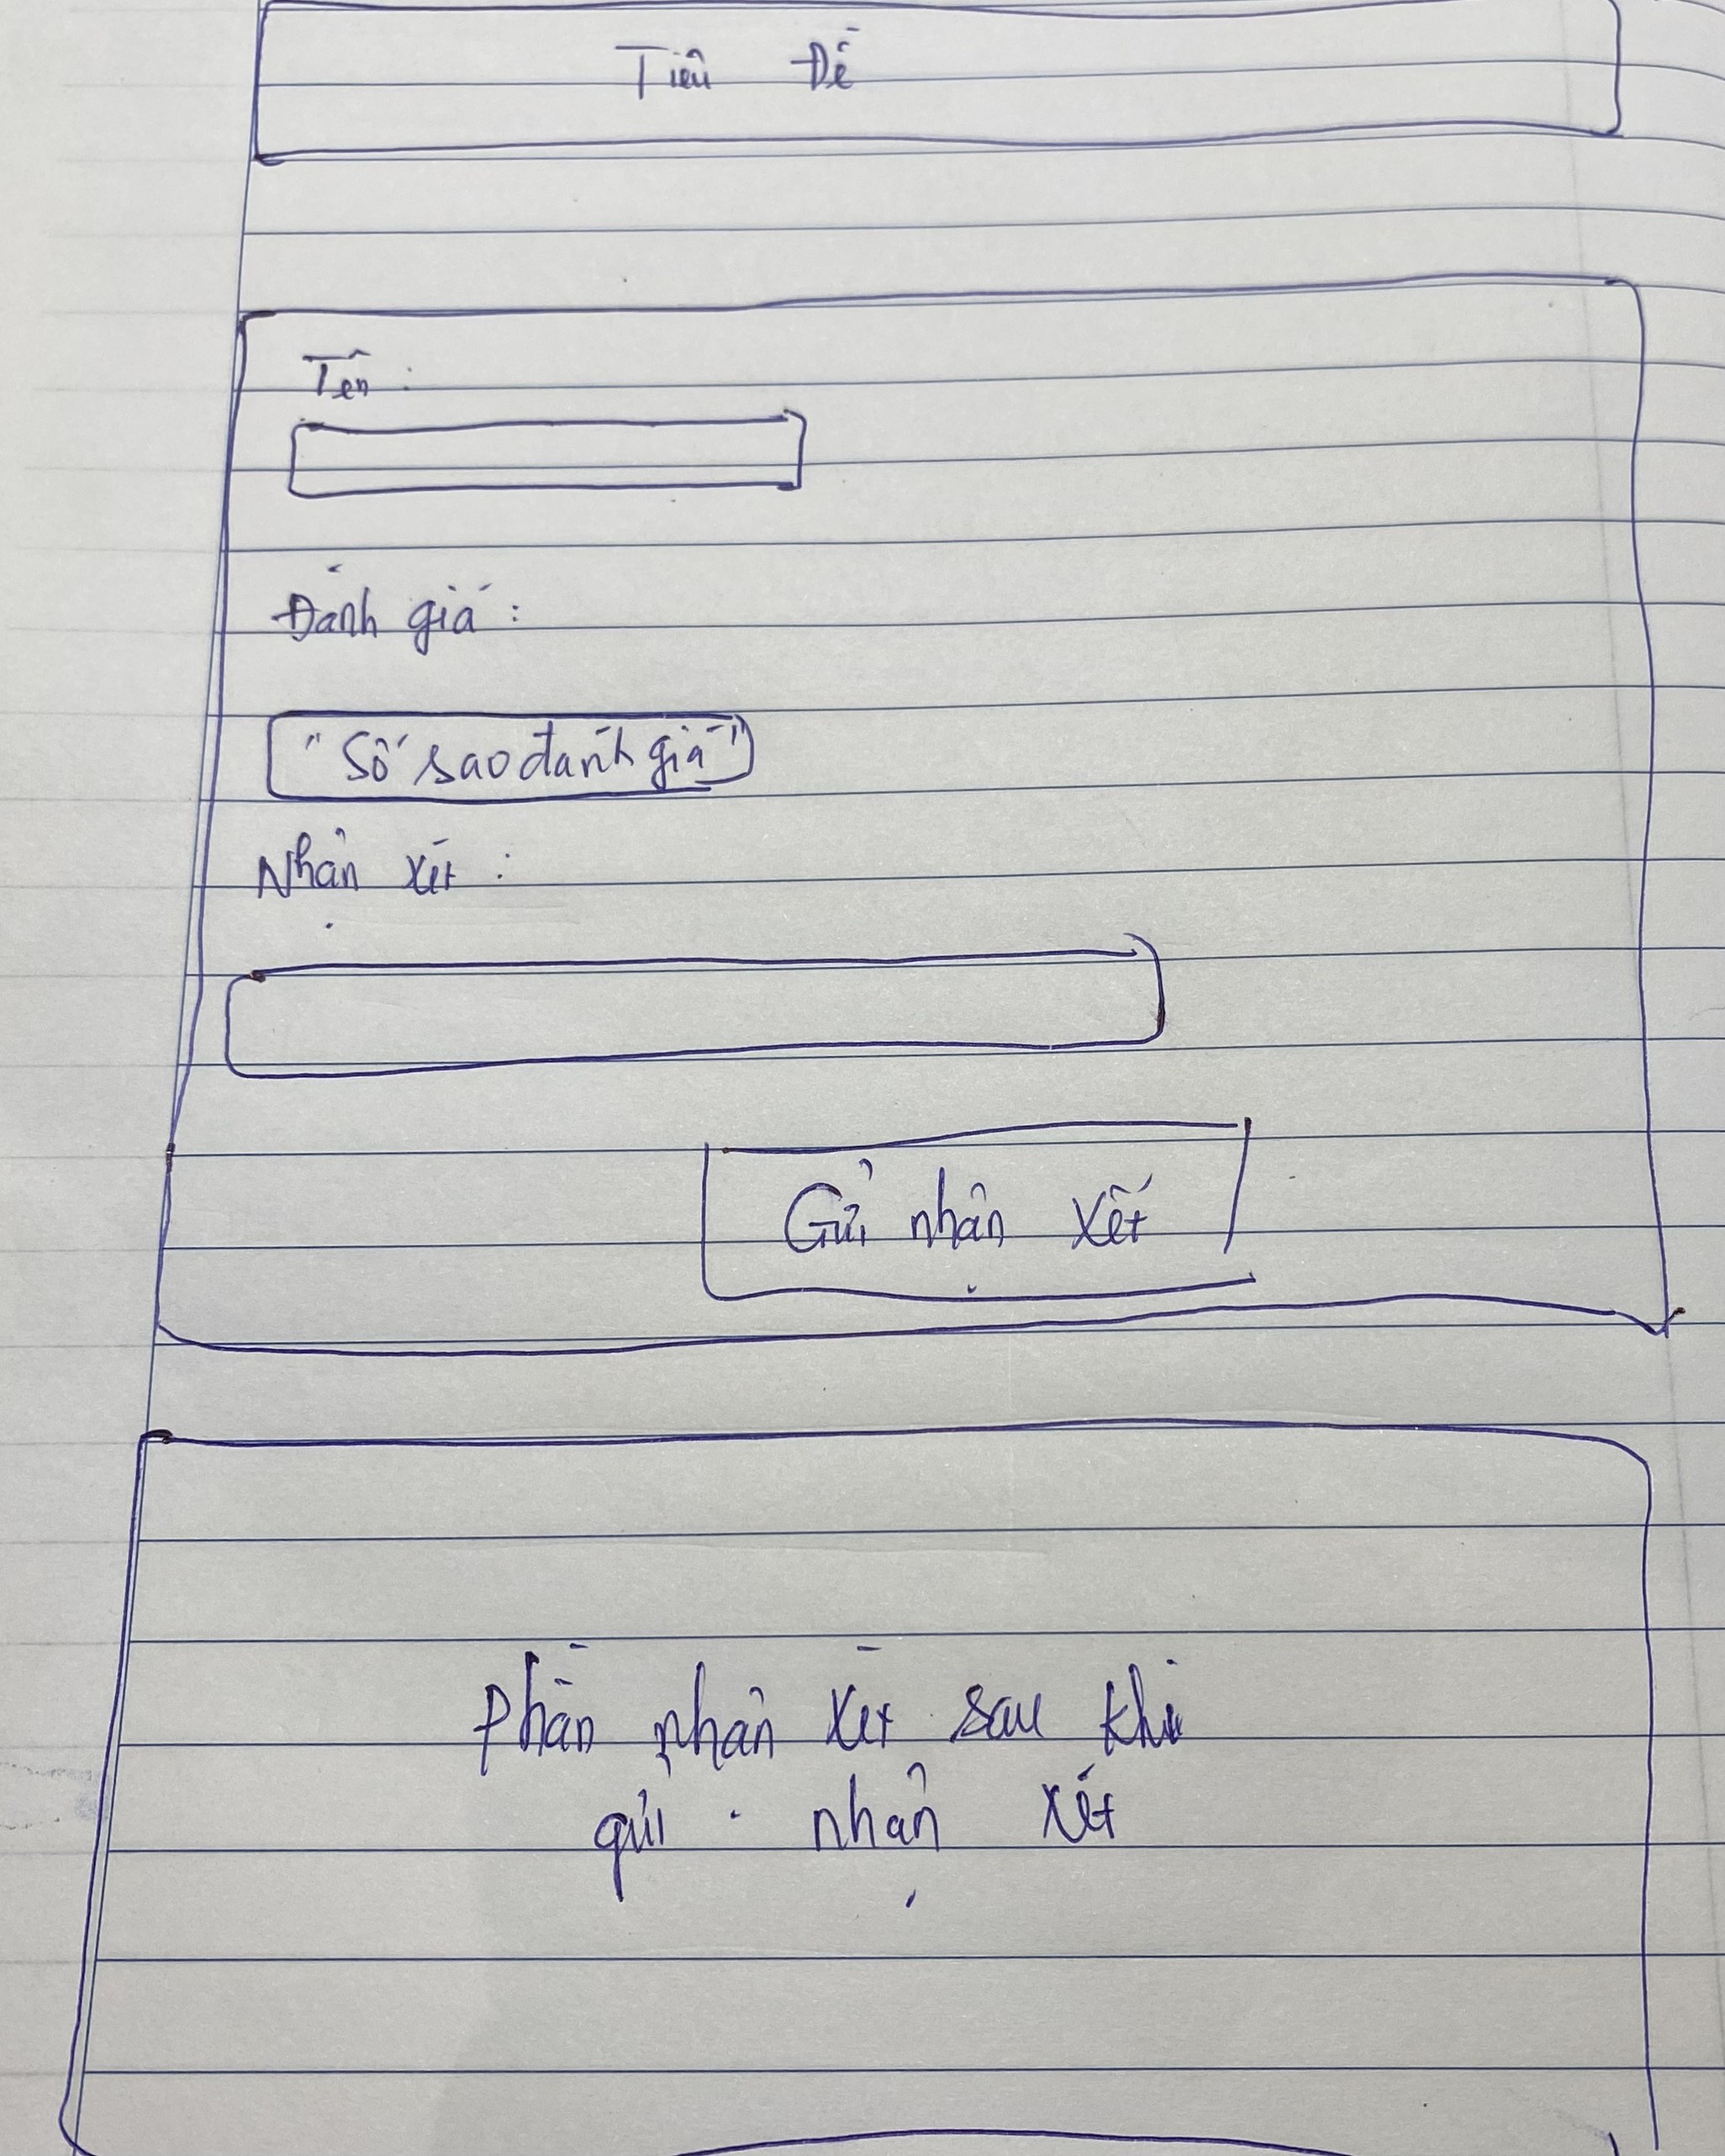 Tiêu Đề
Tên :
Đánh giá :
"Số sao đánh giá"
Nhận xét :
Gửi nhận xét
Phần nhận xét sau khi
gửi nhận xét